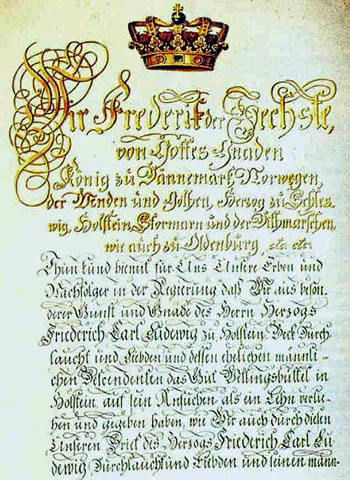 Wir Frederik der Sechste,
von Gottes Gnaden
König zu Dännemark, Norwegen,
der Wenden und Gothen, Herzog zu Schles
wig, Holstein, Stormarn und der Dithmarschen,
wie auch zu Oldenburg, etc. etc.
Thun kund hiemit für Uns Unsere Erben und
Nachfolger in der Regierung daß Wir aus beson
derer Gunst und Gnade des Herrn Herzogs
Friederich Carl Ludewig zu Holstein Beck Durch
laucht und Liebden und dessen ehelichen männli-
chen Descendenten das Gut Wellingsbüttel in
Holstein auf sein Ansuchen als ein Lehn verlie-
hen und gegeben haben, wie Wir auch durch diesen
Unseren Brief des Herzogs Friederich Carl Lu
dewig, Durchlaucht und Liebden und seinen männ-